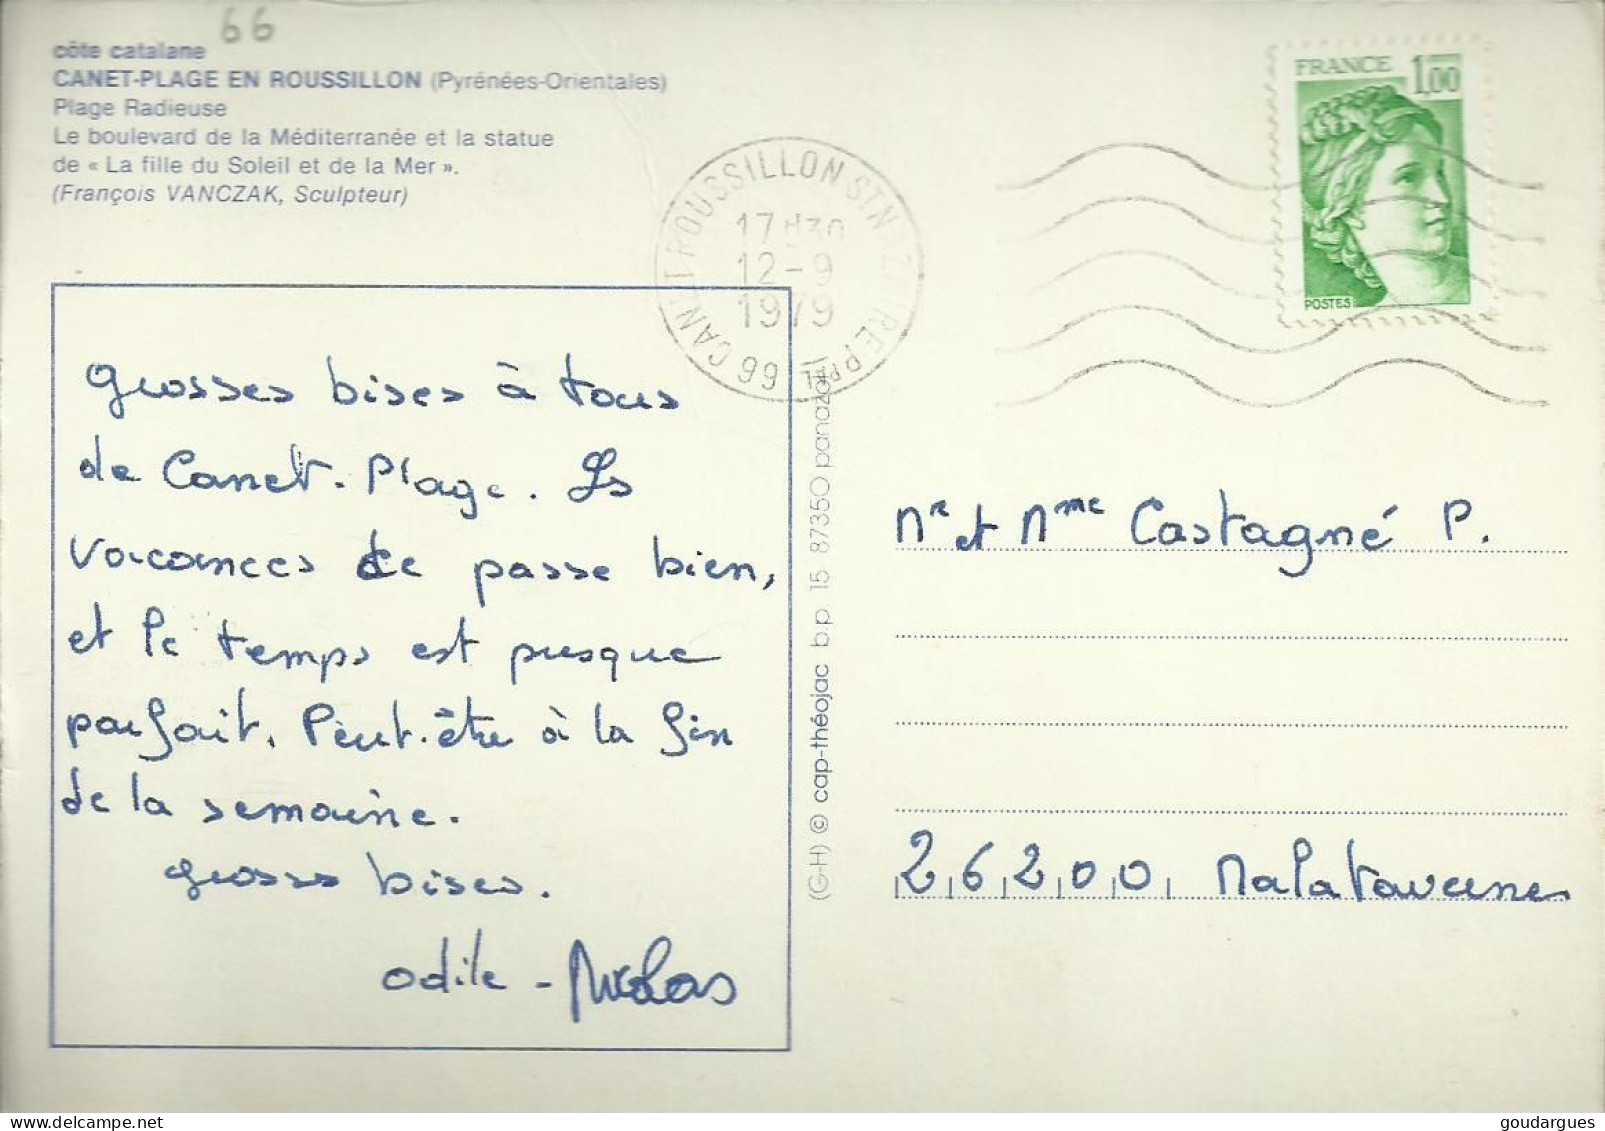 66
côte catalane
CANET-PLAGE EN ROUSSILLON (Pyrénées-Orientales)
Plage Radieuse
Le boulevard de la Méditerranée et la statue
de « La fille du Soleil et de la Mer ».
(François VANCZAK, Sculpteur)
66 CANET ROUSSILLON ST NAZAIRE PPAL
17H30
12-9
1979
FRANCE 1,00
POSTES
Grosses bises à tous
de Canet-Plage. Ls
vacances de passe bien,
et le temps est presque
parfait. Peut-être à la fin
de la semaine.
grosses bises.
Odile - Nicolas
(G-H) © cap-théojac b.p 15 87350 panazol
Mr et Mme Castagné P.
26200 Malataverne
goudargues